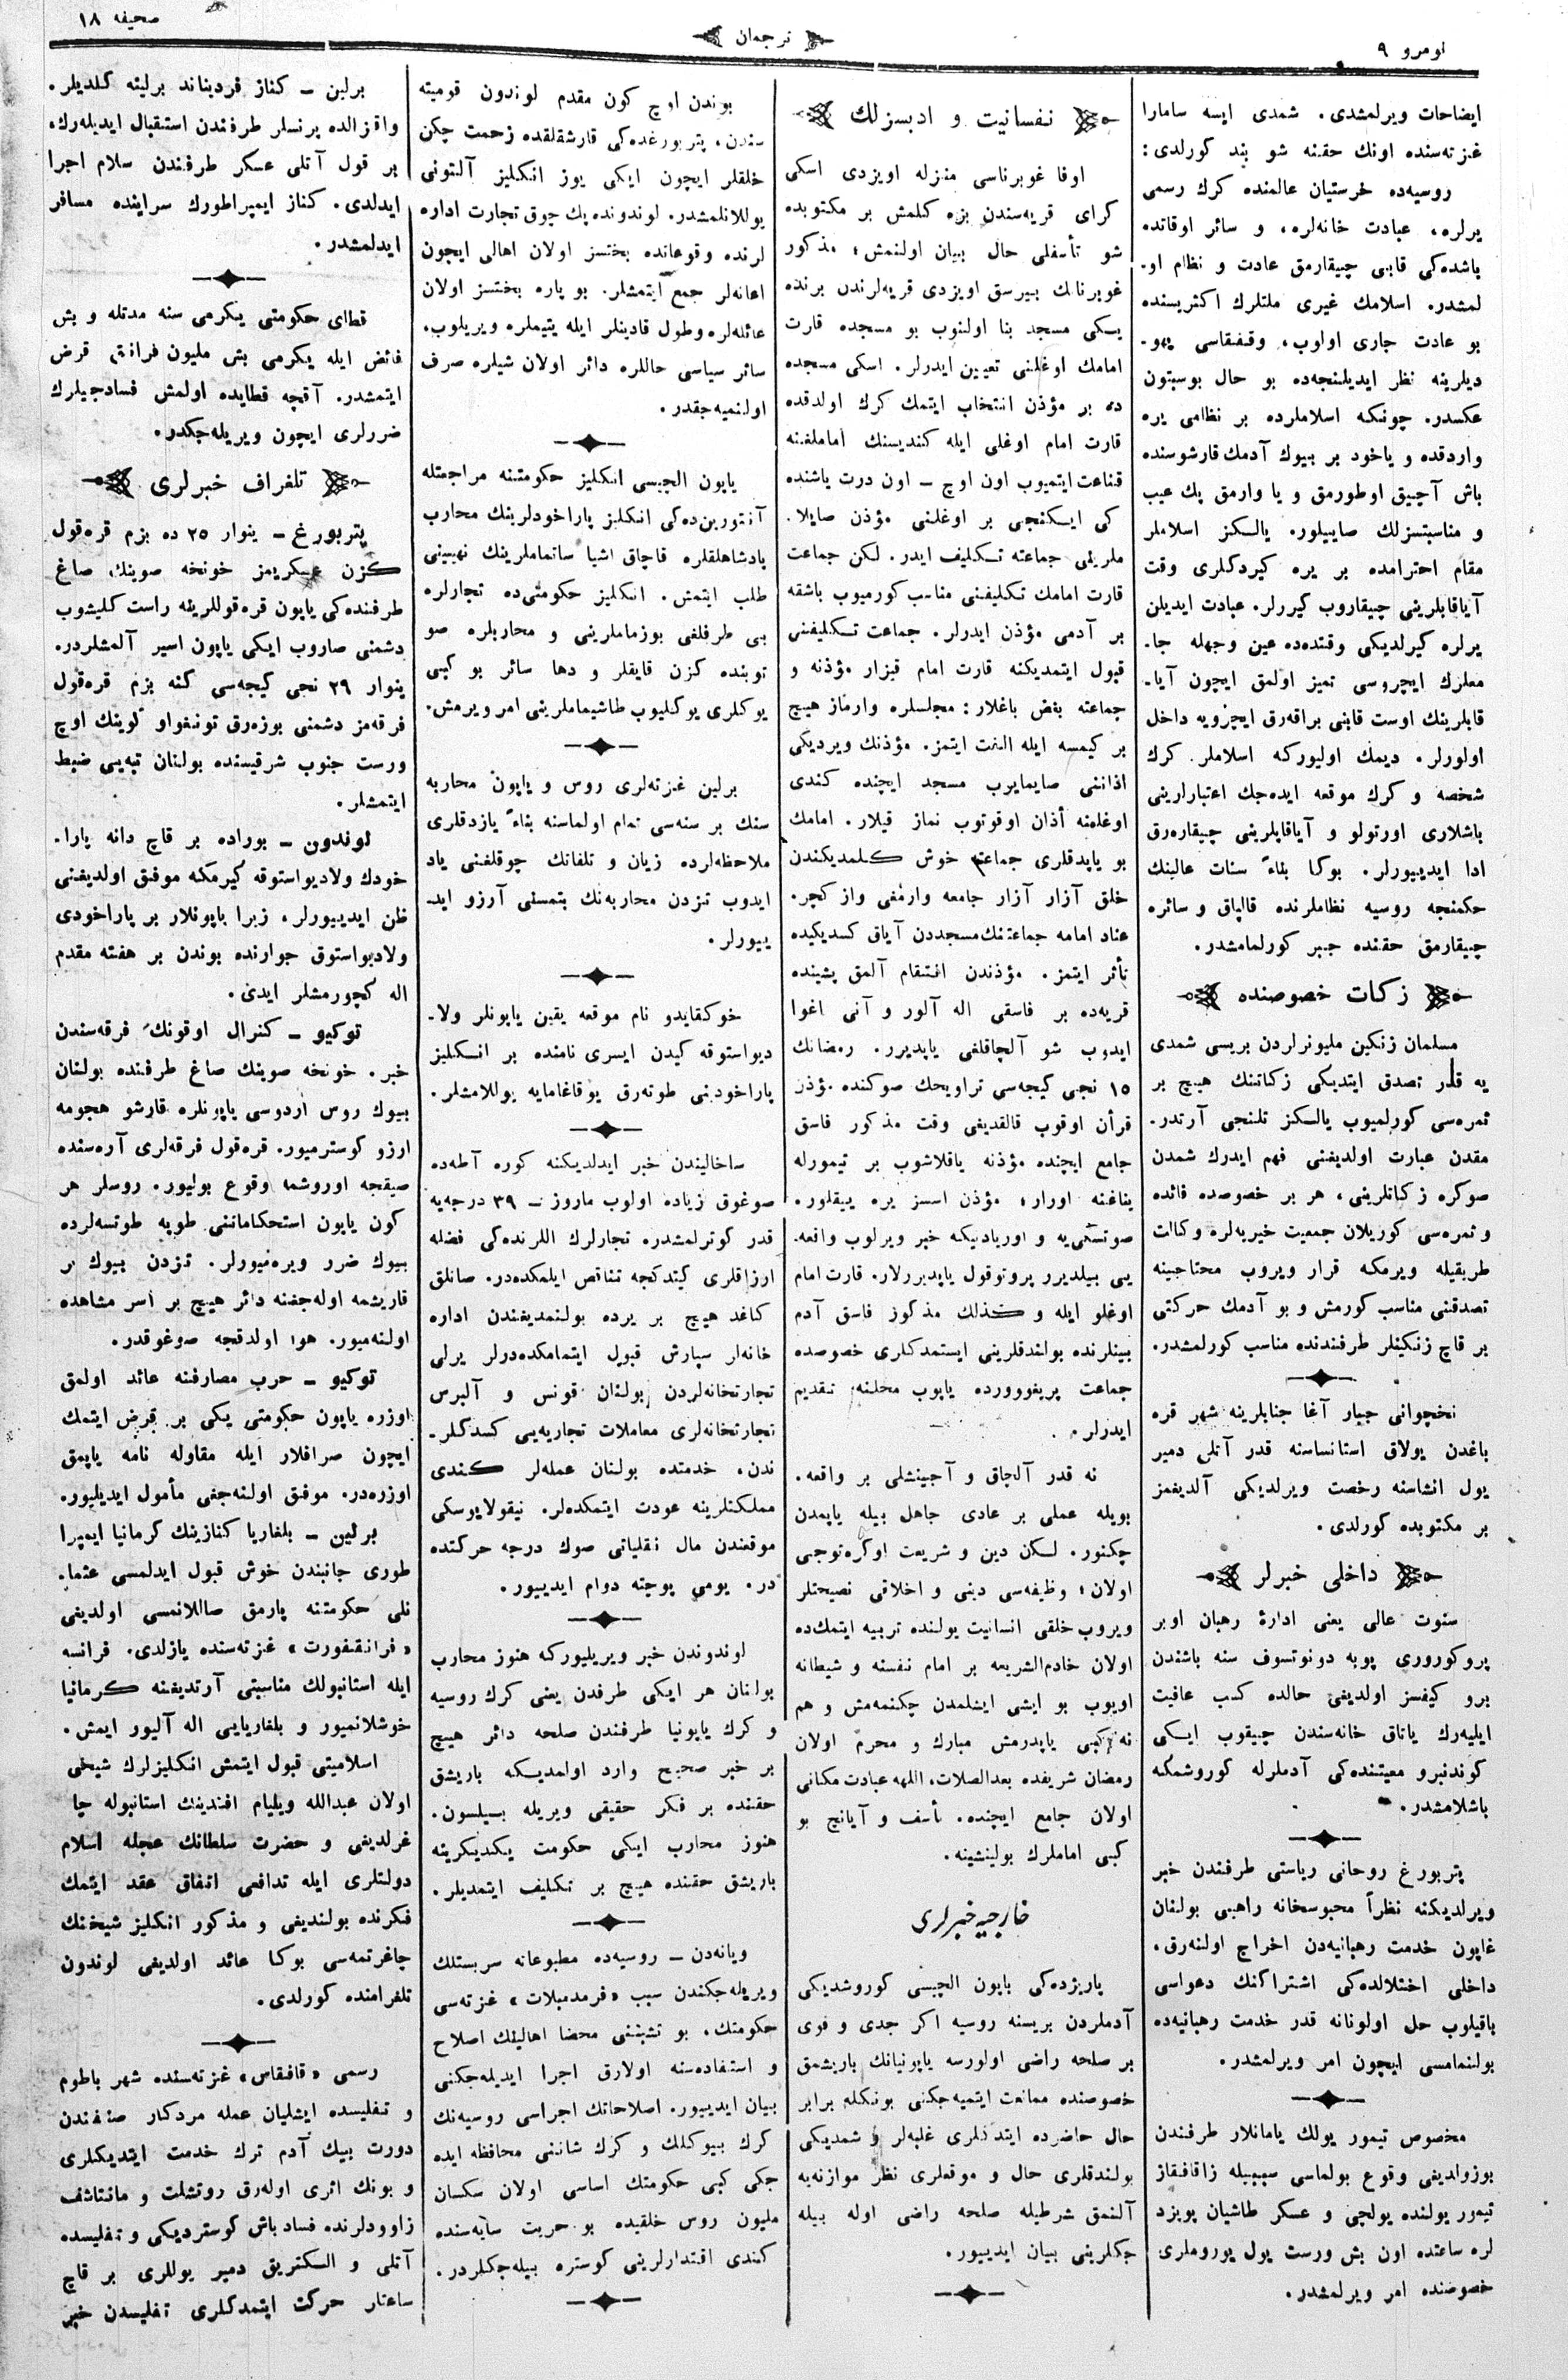 نومرو ٩
ترجمان
صحیفه ١٨
ایضاحات ویرلمشدی. شمدی ایسه سامارا
غزته‌سنده اونك حقنه شو بند كورلدی:
روسیه‌ده خرستیان عالمنده كرك رسمی
یرلره، عبادت خانه‌لره، و سائر اوقاتده
باشده‌كی قابی چیقارمق عادت و نظام او-
لمشدر. اسلامك غیری ملتلرك اكثریسنده
بو عادت جاری اولوب، وقفقاسی یهو-
دیلرینه نظر ایدیلنجه‌ده بو حال بوسبتون
عكسدر. چونكه اسلاملرده بر نظامی یره
واردقده و یاخود بر بیوك آدمك قارشوسنده
باش آچیق اوطورمق و یا وارمق پك عیب
و مناسبتسزلك صاییلور. یالكز اسلاملر
مقام احترامده بر یره كیردكلری وقت
آیاقابلرینی چیقاروب كیررلر. عبادت ایدیلن
یرلره كیرلدیكی وقتده‌ده عین وجهله جا-
معلرك ایچروسی تمیز اولمق ایچون آیا-
قابلرینك اوست قابنی براقه‌رق ایچرویه داخل
اولورلر. دیمك اولیوركه اسلاملر كرك
شخصه و كرك موقعه ایده‌جك اعتبارارینی
باشلاری اورتولو و آیاقاپلرینی چیقاره‌رق
ادا ایدییورلر. بوكا بناءً سنات عالینك
حكمنجه روسیه نظاملرنده قالپاق و سائره
چیقارمق حقنده جبر كورلمامشدر.
زكات خصوصنده
مسلمان زنكین ملیونرلردن بریسی شمدی
یه قدر تصدق ایتدیكی زكاتنك هیچ بر
ثمره‌سی كورلمیوب یالكز تلنجی آرتدر-
مقدن عبارت اولدیغنی فهم ایدرك شمدن
صوكره زكاتلرینی، هر بر خصوصده فائده
و ثمره‌سی كوریلان جمعیت خیریه‌لره وكالت
طریقیله ویرمكه قرار ویروب محتاجینه
تصدقنی مناسب كورمش و بو آدمك حركتی
بر قاچ زنكینلر طرفندنده مناسب كورلمشدر.
نخچوانی جبار آغا جنابلرینه شهر قره
باغدن یولاق استانساسنه قدر آتلی دمیر
یول انشاسنه رخصت ویرلدیكی آلدیغمز
بر مكتوبده كورلدی.
داخلی خبرلر
سنوت عالی یعنی ادارۀ رهبان اوبر
پروكوروری پوبه دونوتسوف سنه باشندن
برو كیفسز اولدیغی حالده كسب عافیت
ایلیه‌رك یاتاق خانه‌سندن چیقوب ایكی
كوندنبرو معیتنده‌كی آدملرله كوروشمكه
باشلامشدر.
پتربورغ روحانی ریاستی طرفندن خبر
ویرلدیكنه نظراً محبوسخانه راهبی بولنان
غاپون خدمت رهبانیه‌دن اخراج اولنه‌رق،
داخلی اختلالده‌كی اشتراكنك دعواسی
باقیلوب حل اولونانه قدر خدمت رهبانیه‌ده
بولنمامسی ایچون امر ویرلمشدر.
مخصوص تیمور یولك یامانلار طرفندن
بوزولدیغی وقوع بولماسی سببیله زاقافقاز
تیمور یولنده یولجی و عسكر طاشیان پویزد
لره ساعتده اون بش ورست یول یوروملری
خصوصنده امر ویرلمشدر.
نفسانیت و ادبسزلك
اوفا غوبرناسی منزله اویزدی اسكی
كرای قریه‌سندن بزه كلمش بر مكتوبده
شو تأسفلی حال بیان اولنمش؛ مذكور
غوبرنانك بیرسق اویزدی قریه‌لرندن برنده
یسكی مسجد بنا اولنوب بو مسجده قارت
امامك اوغلنی تعیین ایدرلر. اسكی مسجده
ده بر مؤذن انتخاب ایتمك كرك اولدقده
قارت امام اوغلی ایله كندیسنك اماملغنه
قناعت ایتمیوب اون اوچ ـ اون درت یاشنده
كی ایكنجی بر اوغلنی مؤذن صایلا-
ملرینی جماعته تكلیف ایدر. لكن جماعت
قارت امامك تكلیفنی مناسب كورمیوب باشقه
بر آدمی مؤذن ایدرلر. جماعت تكلیفنی
قبول ایتمدیكنه قارت امام قیزار مؤذنه و
جماعته بغض باغلار: مجلسلره وارماز هیچ
بر كیمسه ایله الفت ایتمز. مؤذنك ویردیكی
اذاننی صایمایرب مسجد ایچنده كندی
اوغلینه أذان اوقوتوب نماز قیلار. امامك
بو یاپدقلری جماعته خوش كلمدیكندن
خلق آزار آزار جامعه وارمغی واز كچر.
عناد امامه جماعتنك مسجددن آیاق كسدیكیده
تأثر ایتمز. مؤذندن انتقام آلمق پشینده
قریه‌ده بر فاسقی اله آلور و آنی اغوا
ایدوب شو آلچاقلغی یاپدیرر. رمضانك
١٥ نجی كیجه‌سی تراویحك صوكنده مؤذن
قرأن اوقوب قالقدیغی وقت مذكور فاسق
جامع ایچنده مؤذنه یاقلاشوب بر تیمورله
یناغنه اورار؛ مؤذن اسسز یره ییقلور.
صوتسكی‌یه و اوریادنیكه خبر ویرلوب واقعه-
یی بیلدیرر پروتوقول یاپدیررلار. قارت امام
اوغلو ایله و كذلك مذكور فاسق آدم
بینلرنده بولندقلرینی ایستمدكلری خصوصده
جماعت پریغوورده یاپوب محلنه تقدیم
ایدرلر.
نه قدر آلچاق و آجینشلی بر واقعه.
بویله عملی بر عادی جاهل بیله یاپمدن
چكنور. لكن دین و شریعت اوكره‌توجی
اولان؛ وظیفه‌سی دینی و اخلاقی نصیحتلر
ویروب خلقی انسانیت یولنده تربیه ایتمك‌ده
اولان خادم‌الشریعه بر امام نفسنه و شیطانه
اویوب بو ایشی ایشلمدن چكنمه‌مش و هم
نه كبی یاپدرمش مبارك و محرم اولان
رمضان شریفده بعدالصلات، اللهه عبادت مكانی
اولان جامع ایچنده. تأسف و آیانچ بو
كبی اماملرك بولینشینه.
خارجیه خبرلری
پاریژده‌كی یاپون الچیسی كوروشدیكی
آدملردن بریسنه روسیه اكر جدی و قوی
بر صلحه راضی اولورسه یاپونیانك باریشمق
خصوصنده ممانعت ایتمیه‌جكنی بونكله برابر
حال حاضرده ایتدكلری غلبه‌لر و شمدیكی
بولندقلری حال و موقعلری نظر موازنه‌یه
آلنمق شرطیله صلحه راضی اوله بیله
جكلرینی بیان ایدییور.
بوندن اوچ كون مقدم لوندون قومیته
سندن، پتربورغده‌كی قارشقلقده زحمت چكن
خلقلر ایچون ایكی یوز انكلیز آلتونی
یوللانلمشدر. لوندونده پك چوق تجارت اداره
لرنده وقوعاتده بختسز اولان اهالی ایچون
اعانه‌لر جمع ایتمشلر. بو پاره بختسز اولان
عائله‌لره وطول قادینلر ایله یتیملره ویریلوب،
سائر سیاسی حاللره دائر اولان شیلره صرف
اولنمیه‌جقدر.
یاپون الچیسی انكلیز حكومتنه مراجعتله
آنتورپن‌ده‌كی انكلیز پاراخودلرینك محارب
پادشاهلقلره قاچاق اشیا ساتماملرینك نهیینی
طلب ایتمش. انكلیز حكومتی‌ده تجارلره
بی طرفلغی بوزماملرینی و محاربلره صو
توبنده كزن قایقلر و دها سائر بو كبی
یوكلری یوكلیوب طاشیماملرینی امر ویرمش.
برلین غزته‌لری روس و یاپون محاربه
سنك بر سنه‌سی تمام اولماسنه بناءً یازدقلری
ملاحظه‌لرده زیان و تلفاتك چوقلغنی یاد
ایدوب تزدن محاربه‌نك بتمسنی آرزو اید-
ییورلر.
خوكقایدو نام موقعه یقین یاپونلر ولا-
دیواستوقه كیدن ایسری نامنده بر انكلیز
پاراخودینی طوته‌رق یوقاغامایه یوللامشلر.
ساخالیندن خبر ایدلدیكنه كوره آطه‌ده
صوغوق زیاده اولوب ماروز ـ ٣٩ درجه‌یه
قدر كوترلمشدر. تجارلرك اللرنده‌كی فضله
ارزاقلری كیتدكجه تناقص ایلمكده‌در. صانلق
كاغد هیچ بر یرده بولنمدیغندن اداره
خانه‌لر سپارش قبول ایتمامكده‌درلر یرلی
تجارتخانه‌لردن بولنان قونس و آلبرس
تجارتخانه‌لری معاملات تجاریه‌یی كسدكلر-
ندن، خدمتده بولنان عمله‌لر كندی
مملكتلرینه عودت ایتمكده‌لر. نیقولایوسكی
موقعندن مال نقلیاتی صوك درجه حركتده
در. یومی پوچته دوام ایدییور.
لوندوندن خبر ویریلیوركه هنوز محارب
بولنان هر ایكی طرفدن یعنی كرك روسیه
و كرك یاپونیا طرفندن صلحه دائر هیچ
بر خبر صحیح وارد اولمدیكه باریشق
حقنده بر فكر حقیقی ویریله بیلسون.
هنوز محارب ایكی حكومت یكدیكرینه
باریشق حقنده هیچ بر تكلیف ایتمدیلر.
ویانه‌دن ـ روسیه‌ده مطبوعاته سربستلك
ویریله‌جكندن سبب «فرمدمبلات» غزته‌سی
حكومتك، بو تشبثنی محضا اهالینك اصلاح
و استفاده‌سنه اولارق اجرا ایدیله‌جكنی
بیان ایدییور. اصلاحاتك اجراسی روسیه‌نك
كرك بیوكلك و كرك شاننی محافظه ایده
جكی كبی حكومتك اساسی اولان سكسان
ملیون روس خلقیده بو حریت سایه‌سنده
كندی اقتدارلرینی كوستره بیله‌جكلردر.
برلین ـ كناز فردیناند برلینه كلدیلر.
واقزالده پرنسلر طرفندن استقبال ایدیله‌رك،
بر قول آتلی عسكر طرفندن سلام اجرا
ایدلدی. كناز ایمپراطورك سراینده مسافر
ایدلمشدر.
قطای حكومتی یكرمی سنه مدتله و بش
فائض ایله یكرمی بش ملیون فرانق قرض
ایتمشدر. آقچه قطایده اولمش فسادجیلرك
ضررلری ایچون ویریله‌جكدر.
تلغراف خبرلری
پتربورغ ـ ینوار ٢٥ ده بزم قره‌قول
كزن عسكریمز خونخه صوینك، صاغ
طرفنده‌كی یاپون قره‌قوللرینه راست كلیشوب
دشمنی صاروب ایكی یاپون اسیر آلمشلردر.
ینوار ٢٩ نجی كیجه‌سی كنه بزم قره‌قول
فرقه‌مز دشمنی بوزه‌رق تونفواو كوینك اوچ
ورست جنوب شرقیسنده بولنان تپه‌یی ضبط
ایتمشلر.
لوندون ـ بوراده بر قاچ دانه پارا-
خودك ولادیواستوقه كیرمكه موفق اولدیغنی
ظن ایدییورلر، زیرا یاپونلار بر پاراخودی
ولادیواستوق جوارنده بوندن بر هفته مقدم
اله كچورمشلر ایدی.
توكیو ـ كنرال اوقونك فرقه‌سندن
خبر. خونخه صوینك صاغ طرفنده بولنان
بیوك روس اردوسی یاپونلره قارشو هجومه
ارزو كوسترمیور. قره‌قول فرقه‌لری آره‌سنده
صیقجه اوروشمه وقوع بولیور. روسلر هر
كون یاپون استحكاماتنی طوپه طوتسه‌لرده
بیوك ضرر ویره‌میورلر. تزدن بیوك بر
قاریشمه اوله‌جغنه دائر هیچ بر اسر مشاهده
اولنه‌میور. هوا اولدقجه صوغوقدر.
توكیو ـ حرب مصارفنه عائد اولمق
اوزره یاپون حكومتی یكی بر قرض ایتمك
ایچون صرافلار ایله مقاوله نامه یاپمق
اوزره‌در. موفق اولنه‌جغی مأمول ایدیلیور.
برلین ـ بلغاریا كنازینك كرمانیا ایمپرا
طوری جانبندن خوش قبول ایدلمسی عثما-
نلی حكومتنه پارمق صاللانمسی اولدیغی
«فرانقفورت» غزته‌سنده یازلدی. فرانسه
ایله استانبولك مناسبتی آرتدیغنه كرمانیا
خوشلانمیور و بلغاریایی اله آلیور ایمش.
اسلامیتی قبول ایتمش انكلیزلرك شیخی
اولان عبدالله ویلیام افندینك استانبوله چا
غرلدیغی و حضرت سلطانك عجله اسلام
دولتلری ایله تدافعی اتفاق عقد ایتمك
فكرنده بولندیغی و مذكور انكلیز شیخنك
چاغرتمه‌سی بوكا عائد اولدیغی لوندون
تلغرامنده كورلدی.
رسمی «قافقاس» غزته‌سنده شهر باطوم
و تفلیسده ایشلیان عمله مردكار صنفندن
دورت بیك آدم ترك خدمت ایتدیكلری
و بونك اثری اوله‌رق روتشلت و مانتاشف
زاوودلرنده فساد باش كوستردیكی و تفلیسده
آتلی و الكتریق دمیر یوللری بر قاچ
ساعتلر حركت ایتمدكلری تفلیسدن خبر